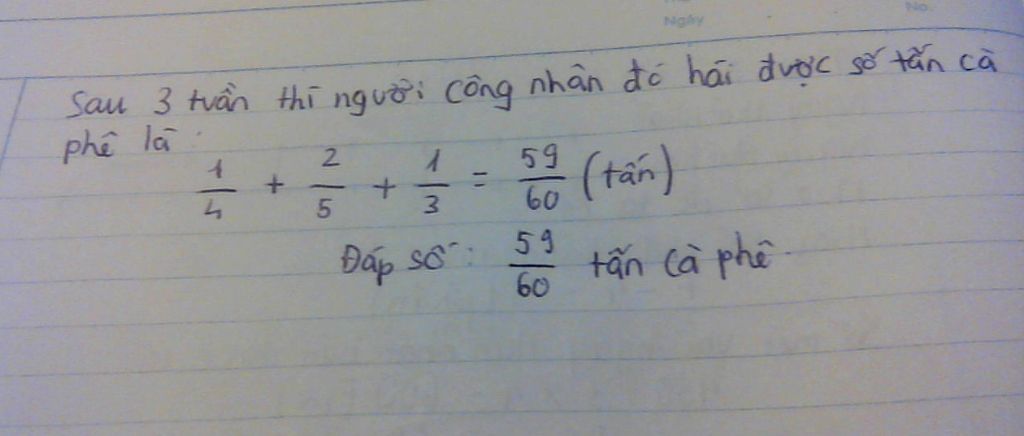 Ngày
No.
Sau 3 tuần thì người công nhân đó hái được số tấn cà
phê là:
1/4 + 2/5 + 1/3 = 59/60 (tấn)
Đáp số: 59/60 tấn cà phê